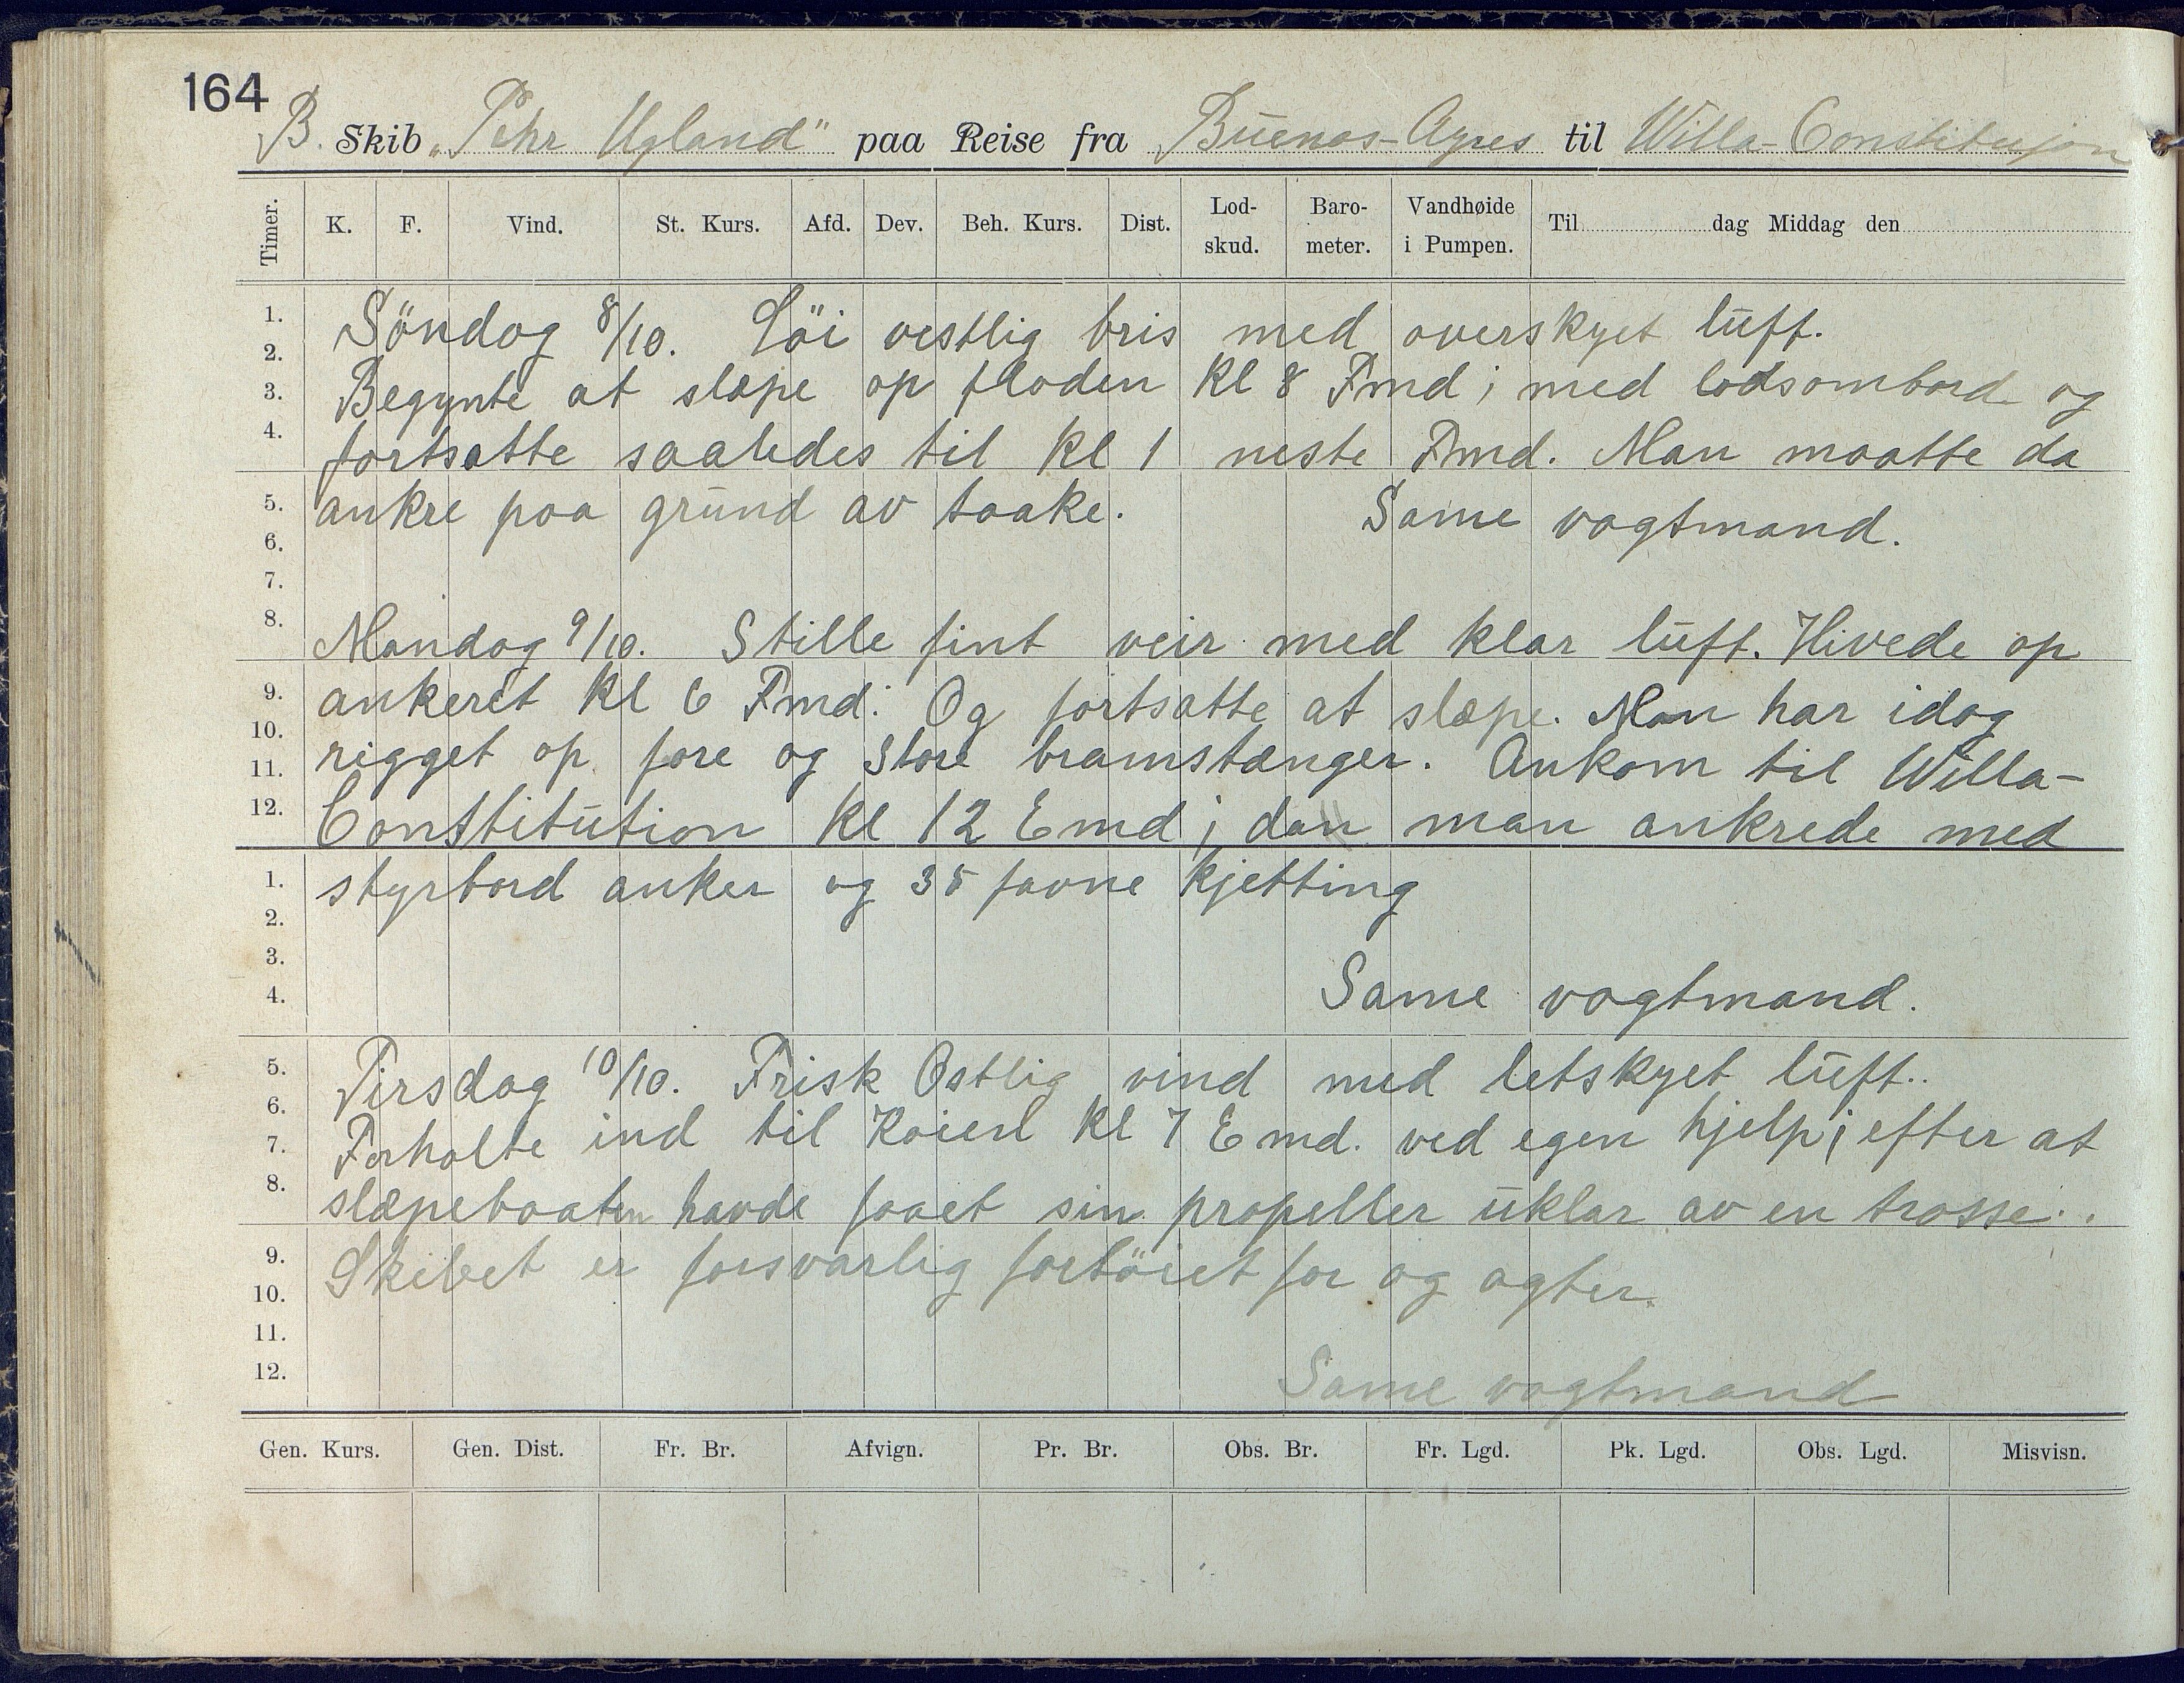 164
B. Skib „Pehr Ugland" paa Reise fra Buenos-Ayres til Willa-Constitusjon
Timer. K. F. Vind. St. Kurs. Afd. Dev. Beh. Kurs. Dist. Lod-skud. Baro-meter. Vandhøide i Pumpen. Til dag Middag den
1.
2.
3.
4.
5.
6.
7.
8.
9.
10.
11.
12.
1.
2.
3.
4.
5.
6.
7.
8.
9.
10.
11.
12.
Söndag 8/10. Löi vestlig bris med overskyet luft.
Begynte at slæpe op floden Kl 8 Fmd; med lodsombord og
fortsatte saaledes til Kl 1 neste Fmd. Man maatte da
ankre paa grund av taake. Same vagtmand.
Mandag 9/10. Stille fint veir med klar luft. Hivede op
ankeret Kl 6 Fmd. Og fortsatte at slæpe. Man har idag
rigget op fore og store bramstænger. Ankom til Willa-
Constitution Kl 12 Emd; dan man ankrede med
styrbord anker og 35 favne Kjetting
Same vagtmand.
Tirsdag 10/10. Frisk Ostlig vind med letskyet luft..
Forhalte ind til Kaien Kl 7 Emd. ved egen hjelp; efter at
slæpebaaten havde faaet sin propeller uklar av en trosse..
Skibet er forsvarlig fortöiet for og agter.
Same vagtmand
Gen. Kurs. Gen. Dist. Fr. Br. Afvign. Pr. Br. Obs. Br. Fr. Lgd. Pk. Lgd. Obs. Lgd. Misvisn.